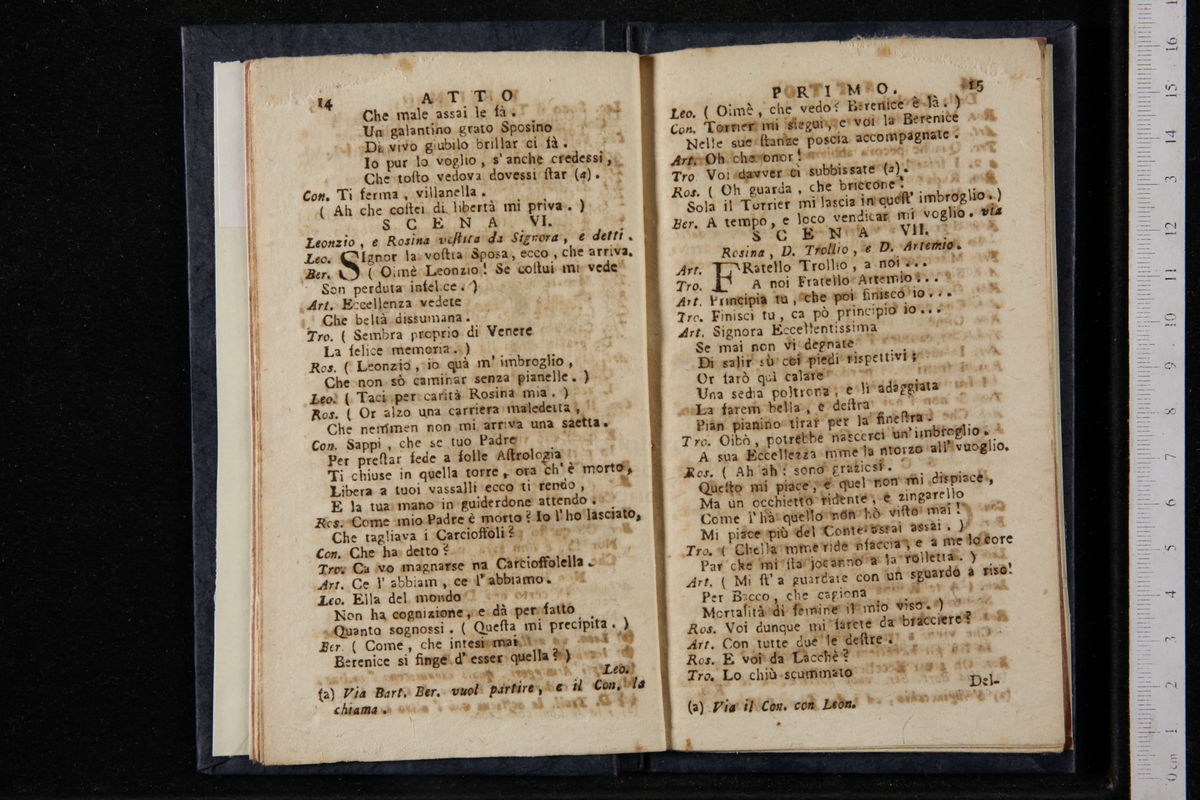 14 ATTO
Che male assai le fà.
Un galantino grato Sposino
Di vivo giubilo brillar ci fà.
Io pur lo voglio, s'anche credessi,
Che tosto vedova dovessi star (a).
Con. Ti ferma, villanella.
( Ah che costei di libertà mi priva. )
SCENA VI.
Leonzio, e Rosina vestita da Signora, e detti.
Leo. SIgnor la vostra Sposa, ecco, che arriva.
Ber. ( Oimè Leonzio! Se costui mi vede
Son perduta infelce. )
Art. Eccellenza vedete
Che beltà dissumana.
Tro. ( Sembra proprio di Venere
La felice memoria. )
Ros. ( Leonzio, io quà m'imbroglio,
Che non sò caminar senza pianelle. )
Leo. ( Taci per carità Rosina mia. )
Ros. ( Or alzo una carriera maledetta,
Che nemmen non mi arriva una saetta.
Con. Sappi, che se tuo Padre
Per prestar fede a folle Astrologia
Ti chiuse in quella torre, ora ch'è morto,
Libera a tuoi vassalli ecco ti rendo,
E la tua mano in guiderdone attendo.
Ros. Come mio Padre è morto? Io l'ho lasciato,
Che tagliava i Carcioffoli?
Con. Che ha detto?
Tro. Ca vo magnarse na Carcioffolella.
Art. Ce l'abbiam, ce l'abbiamo.
Leo. Ella del mondo
Non ha cognizione, e dà per fatto
Quanto sognossi. ( Questa mi precipita. )
Ber. ( Come, che intesi mai
Berenice si finge d'esser quella? )
Leo.
(a) Via Bart. Ber. vuol partire, e il Con. la
chiama.
PRIMO. 15
Leo. ( Oimè, che vedo? Berenice è là. )
Con. Torrier mi siegui, e voi la Berenice
Nelle sue stanze poscia accompagnate.
Art. Oh che onor!
Tro Voi davver ci subbissate (a).
Ros. ( Oh guarda, che briccone!
Sola il Torrier mi lascia in quest'imbroglio. )
Ber. A tempo, e loco vendicar mi voglio. via
SCENA VII.
Rosina, D. Trollio, e D. Artemio.
Art. FRatello Trollio, a noi ...
Tro. A noi Fratello Artemio ...
Art. Principia tu, che poi finisco io ...
Tro. Finisci tu, ca pò principio io ...
Art. Signora Eccellentissima
Se mai non vi degnate
Di salir sù coi piedi rispettivi;
Or farò quì calare
Una sedia poltrona, e lì adaggiata
La farem bella, e destra
Pian pianino tirar per la finestra.
Tro. Oibò, potrebbe nascerci un'imbroglio.
A sua Eccellezza mme la ntorzo all'vuoglio.
Ros. ( Ah ah! sono graziosi.
Questo mi piace, e quel non mi dispiace,
Ma un occhietto ridente, e zingarello
Come l'hà quello non hò visto mai!
Mi piace più del Conte assai assai. )
Tro. ( Chella mme ride nfaccia, e a me lo core
Par che mi sta jocanno a la rolletta. )
Art. ( Mi st'a guardare con un sguardo a riso!
Per Bacco, che cagiona
Mortalità di femine il mio viso. )
Ros. Voi dunque mi farete da bracciere?
Art. Con tutte due le destre.
Ros. E voi da Lacchè?
Tro. Lo chiù scummato
Del-
(a) Via il Con. con Leon.